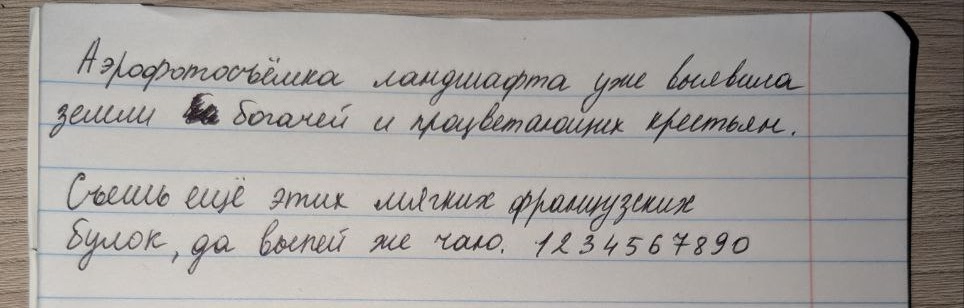 Аэрофотосъёмка ландшафта уже выявила
земли богачей и процветающих крестьян.
Съешь ещё этих мягких французских
булок, да выпей же чаю. 1234567890